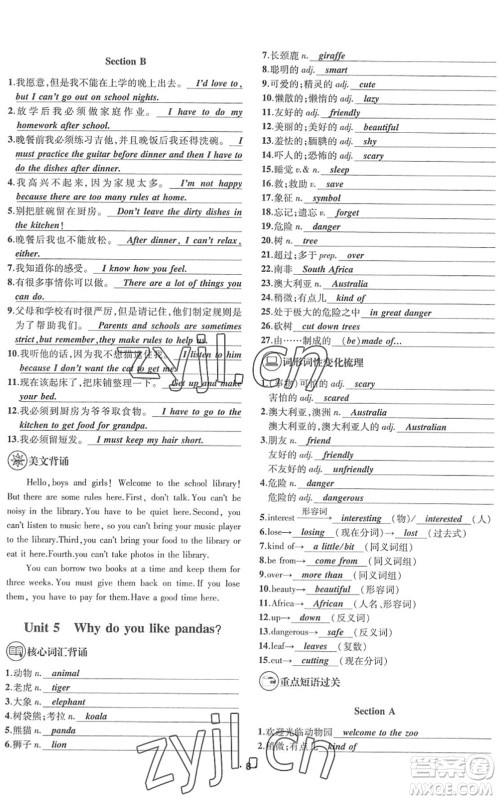 Section B
1.我愿意,但是我不能在上学的晚上出去。 I'd love to,
but I can't go out on school nights.
2.放学后我必须做家庭作业。 I have to do my
homework after school.
3.晚餐前我必须练习吉他,并且晚饭后我还得洗碗。 I
must practice the guitar before dinner and then I have to
do the dishes after dinner.
4.我高兴不起来,因为家规太多了。 I'm not happy
because there are too many rules at home.
5.别把脏碗留在厨房。 Don't leave the dirty dishes in
the kitchen!
6.晚餐后我也不能放松。 After dinner, I can't relax,
either.
7.我知道你的感受。 I know how you feel.
8.有很多事情你可以做。 There are a lot of things you
can do.
9.父母和学校有时很严厉,但是请记住,他们制定规则是为
了帮助我们。 Parents and schools are sometimes
strict, but remember, they make rules to help us.
10.我听他的话,因为我不想猫逼这住我。 I
because I don't want the cat to get me!
11.现在该起床了,把床铺整理一下。 Now get up and make
your bed.
12.我必须去厨房为爷爷取食物。 I have to go to the
kitchen to get food for grandpa.
13.我必须留短发。 I must keep my hair short.
美文背诵
Hello, boys and girls! Welcome to the school library!
But there are some rules here. First, don't talk. You can't be
noisy in the library, but you can listen to music. Second, you
can't listen to music so you can't bring your music player
to the library. Third, you can't bring your food to the library or
eat it here. Fourth, you can't take photos in the library.
You can borrow two books at a time and keep them for
three weeks. You must give them back on time. If you lose
them, you have to pay for them.
Unit 5 Why do you like pandas?
核心词汇背诵
1.动物 n. animal
2.老虎 n. tiger
3.大象 n. elephant
4.树袋熊;考拉 n. koala
5.熊猫 n. panda
6.狮子 n. lion
7.长颈鹿 n. giraffe
8.聪明的 adj. smart
9.可爱的;精灵的 adj. cute
10.懒散的;懒惰的 adj. lazy
11.友好的 adj. friendly
12.美丽的;美好的 adj. beautiful
13.羞怯的;腼腆的 adj. shy
14.吓人的;恐怖的 adj. scary
15.睡觉 v.& n. sleep
16.救;救助 v. save
17.象征 n. symbol
18.忘记;遗忘 v. forget
19.危险 n. danger
20.树 n. tree
21.超过;多于 prep. over
22.南非 South Africa
23.澳大利亚 n. Australia
24.稍微;有点儿 kind of
25.处于极大的危险之中 in great danger
26.砍树 cut down trees
27.由……制成的 (be) made of…
词形词性变化梳理
1.(事物)可怕的 adj. scary
害怕的 adj. scared
2.澳大利亚,澳洲 n. Australia
澳大利亚的,澳大利亚人的 adj. Australian
3.朋友 n. friend
友好的 adj. friendly
不友好的 adj. unfriendly
4.危险 n. danger
危险的 adj. dangerous
5.interest 形容词 interesting (物)/ interested (人)
6.lose→ losing (现在分词)→ lost (过去式)
7.kind of→ a little/bit (同义词组)
8.be from→ come from (同义词组)
9.over→ more than (同义词组)
10.beauty→ beautiful (形容词)
11.Africa→ African (人名、形容词)
12.up→ down (反义词)
13.dangerous→ safe (反义词)
14.leaf→ leaves (复数)
15.cut→ cutting (现在分词)
重点短语过关
Section A
1.欢迎光临动物园 welcome to the zoo
2.稍微;有点儿 kind of
8
zyjl.cn
zyjl.cn
答案圈
MXQE.COM